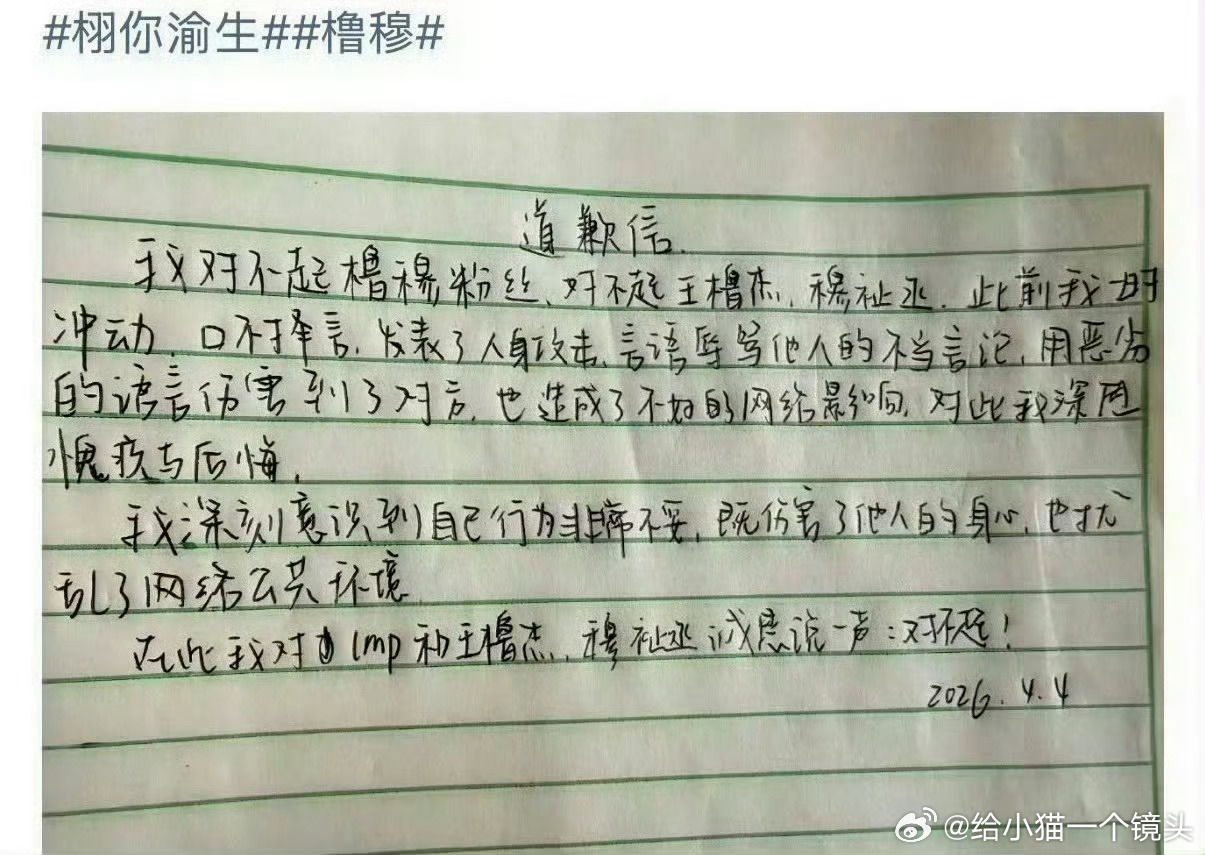 #栩你渝生##橹穆#
道歉信.
我对不起橹穆粉丝、对不起王橹杰、穆祉丞. 此前我一时
冲动、口不择言、发表了人身攻击、言语辱骂他人的不当言论、用恶劣
的语言伤害到了对方、也造成了不好的网络影响、对此我深感
愧疚与后悔.
我深刻意识到自己行为非常不妥、既伤害了他人的身心、也扰
乱了网络公共环境
在此我对 lmp和王橹杰、穆祉丞诚恳说一声:对不起!
2026.4.4
@给小猫一个镜头